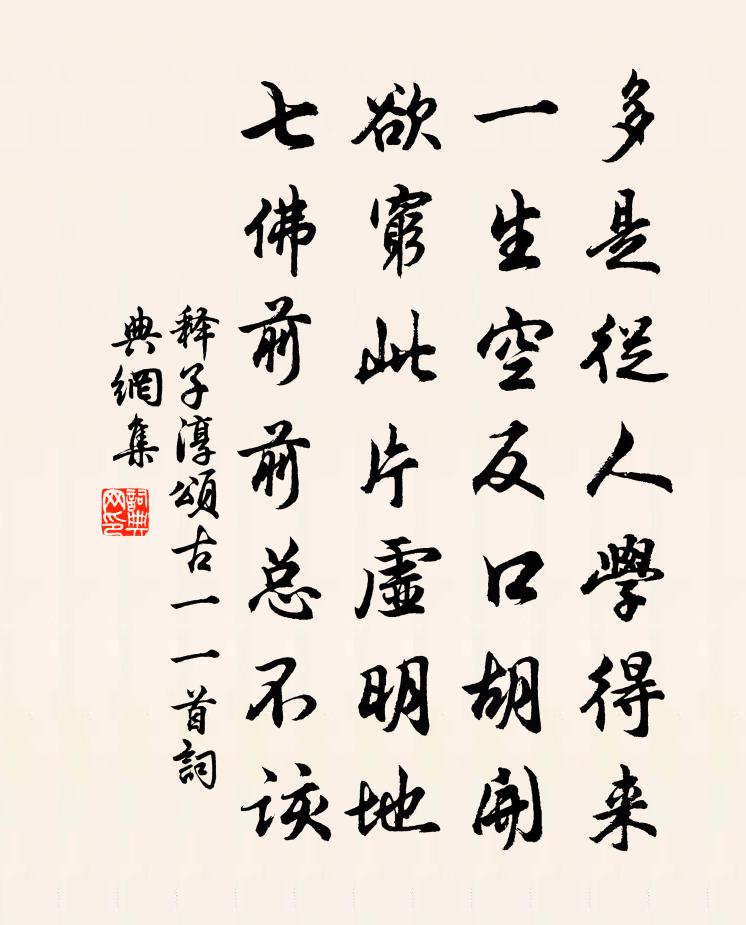 多是從人學得来
一生空反口胡開
欲窮此片虛明地
七佛前前总不该
释子淳頌古一一首詞
典網集
詞典网印